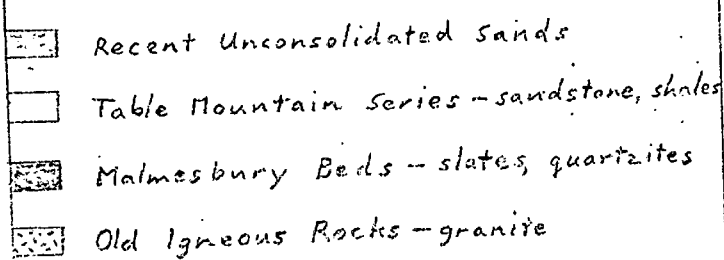 Recent Unconsolidated Sands
Table Mountain Series - sandstone, shales
Malmesbury Beds - slates, quartzites
Old Igneous Rocks - granite